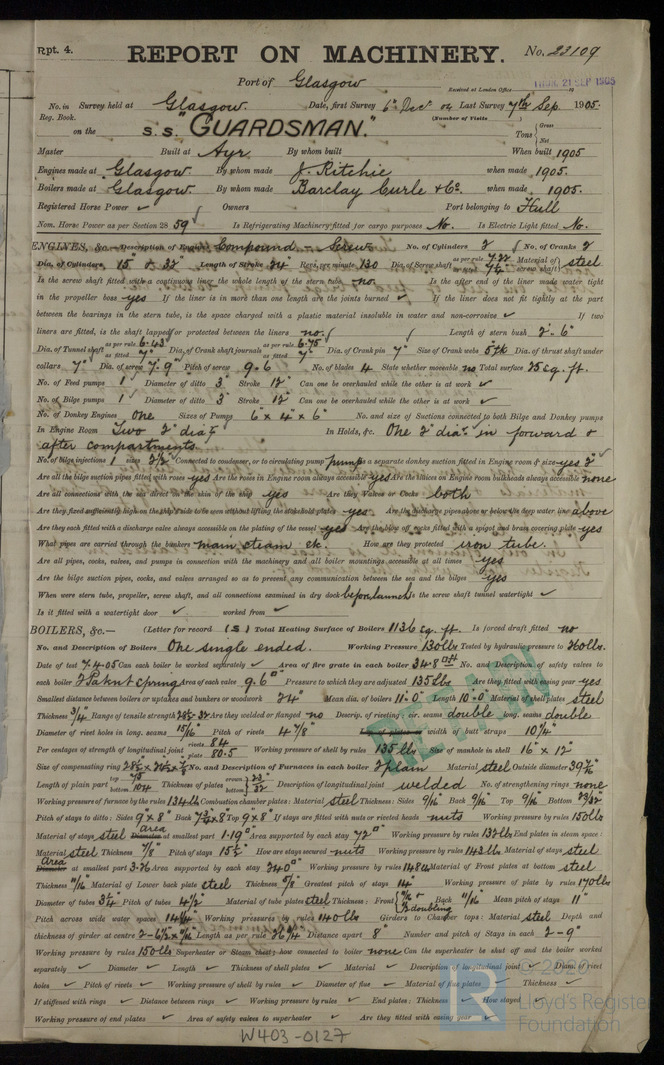 Rpt. 4. REPORT ON MACHINERY. No. 23109
Port of Glasgow
Received at London Office THUR. 21 SEP 1905
No. in Survey held at Glasgow Date, first Survey 6th Dec 04 Last Survey 7th Sep 1905.
Reg. Book. (Number of Visits
on the S.S. "GUARDSMAN." Tons { Gross Net
Master Built at Ayr By whom built When built 1905
Engines made at Glasgow By whom made J. Ritchie when made 1905.
Boilers made at Glasgow By whom made Barclay Curle & Co. when made 1905.
Registered Horse Power Owners Port belonging to Hull
Nom. Horse Power as per Section 28 59 Is Refrigerating Machinery fitted for cargo purposes No. Is Electric Light fitted No.
ENGINES, &c.—Description of Engines Compound Screw No. of Cylinders 2 No. of Cranks 2
Dia. of Cylinders 15" & 32" Length of Stroke 24" Revs. per minute 130 Dia. of Screw shaft as per rule 7.22 as fitted 7½ Material of screw shaft steel
Is the screw shaft fitted with a continuous liner the whole length of the stern tube no. Is the after end of the liner made water tight
in the propeller boss yes If the liner is in more than one length are the joints burned If the liner does not fit tightly at the part
between the bearings in the stern tube, is the space charged with a plastic material insoluble in water and non-corrosive If two
liners are fitted, is the shaft lapped or protected between the liners no. Length of stern bush 2'-6"
Dia. of Tunnel shaft as per rule 6.43 as fitted 7" Dia. of Crank shaft journals as per rule 6.75 as fitted 7" Dia. of Crank pin 7" Size of Crank webs 5 thk Dia. of thrust shaft under
collars 7" Dia. of screw 7'-9" Pitch of screw 9-6 No. of blades 4 State whether moveable no Total surface 25 sq. ft.
No. of Feed pumps 1 Diameter of ditto 3" Stroke 12" Can one be overhauled while the other is at work
No. of Bilge pumps 1 Diameter of ditto 3" Stroke 12" Can one be overhauled while the other is at work
No. of Donkey Engines One Sizes of Pumps 6" x 4" x 6" No. and size of Suctions connected to both Bilge and Donkey pumps
In Engine Room Two 2" dia. In Holds, &c. One 2" dia. in forward &
after compartments.
No. of bilge injections 1 sizes 2½" Connected to condenser, or to circulating pump pump Is a separate donkey suction fitted in Engine room & size yes 2"
Are all the bilge suction pipes fitted with roses yes Are the roses in Engine room always accessible yes Are the sluices on Engine room bulkheads always accessible none
Are all connections with the sea direct on the skin of the ship yes Are they Valves or Cocks both
Are they fixed sufficiently high on the ship's side to be seen without lifting the stokehold plates yes. Are the discharge pipes above or below the deep water line above
Are they each fitted with a discharge valve always accessible on the plating of the vessel yes Are the blow off cocks fitted with a spigot and brass covering plate yes
What pipes are carried through the bunkers main steam etc. How are they protected iron tube.
Are all pipes, cocks, valves, and pumps in connection with the machinery and all boiler mountings accessible at all times yes
Are the bilge suction pipes, cocks, and valves arranged so as to prevent any communication between the sea and the bilges yes
When were stern tube, propeller, screw shaft, and all connections examined in dry dock before launch Is the screw shaft tunnel watertight
Is it fitted with a watertight door worked from
BOILERS, &c.— (Letter for record (S) Total Heating Surface of Boilers 1136 sq. ft. Is forced draft fitted no
No. and Description of Boilers One single ended. Working Pressure 130 lbs Tested by hydraulic pressure to 260 lbs.
Date of test 7.4.05 Can each boiler be worked separately Area of fire grate in each boiler 34.8 No. and Description of safety valves to
each boiler 2 Patent Spring Area of each valve 9.6" Pressure to which they are adjusted 135 lbs Are they fitted with easing gear yes
Smallest distance between boilers or uptakes and bunkers or woodwork 24" Mean dia. of boilers 11'-0" Length 10'-0" Material of shell plates steel
Thickness 3/4" Range of tensile strength 28½-32 Are they welded or flanged no Descrip. of riveting: cir. seams double long. seams double
Diameter of rivet holes in long. seams 15/16" Pitch of rivets 4 7/8" width of butt straps 10¼"
Per centages of strength of longitudinal joint rivets 84 plate 80.5 Working pressure of shell by rules 135 lbs Size of manhole in shell 16" x 12"
Size of compensating ring No. and Description of Furnaces in each boiler 2 plain Material steel Outside diameter
Length of plain part top 75 bottom 104 Thickness of plates crown 23/32 bottom Description of longitudinal joint welded No. of strengthening rings none
Working pressure of furnace by the rules 134 lbs Combustion chamber plates: Material steel Thickness: Sides 9/16 Back 9/16 Top 9/16 Bottom
Pitch of stays to ditto: Sides 9 x 8" Back Top 9 x 8" If stays are fitted with nuts or riveted heads nuts Working pressure by rules 150 lbs
Material of stays steel Area at smallest part 1.19" Area supported by each stay 72" Working pressure by rules 132 lbs End plates in steam space:
Material steel Thickness 7/8" Pitch of stays 15½" How are stays secured nuts Working pressure by rules 143 lbs Material of stays steel
Area at smallest part 3.76 Area supported by each stay 240" Working pressure by rules 148 lbs Material of Front plates at bottom steel
Thickness 11/16" Material of Lower back plate steel Thickness 5/8" Greatest pitch of stays 14" Working pressure of plate by rules 170 lbs
Diameter of tubes 3¼" Pitch of tubes 4½" Material of tube plates steel Thickness: Front doubling Back 11/16" Mean pitch of stays 11"
Pitch across wide water spaces Working pressures by rules 140 lbs Girders to Chamber tops: Material steel Depth and
thickness of girder at centre Length as per rule 26¼" Distance apart 8" Number and pitch of Stays in each 2-9"
Working pressure by rules 150 lbs Superheater or Steam chest; how connected to boiler none Can the superheater be shut off and the boiler worked
separately Diameter Length Thickness of shell plates Material Description of longitudinal joint Diam. of rivet
holes Pitch of rivets Working pressure of shell by rules Diameter of flue Material of flue plates Thickness
If stiffened with rings Distance between rings Working pressure by rules End plates: Thickness How stayed
Working pressure of end plates Area of safety valves to superheater Are they fitted with easing gear
W403-0127
© 2020
Lloyd's Register
Foundation